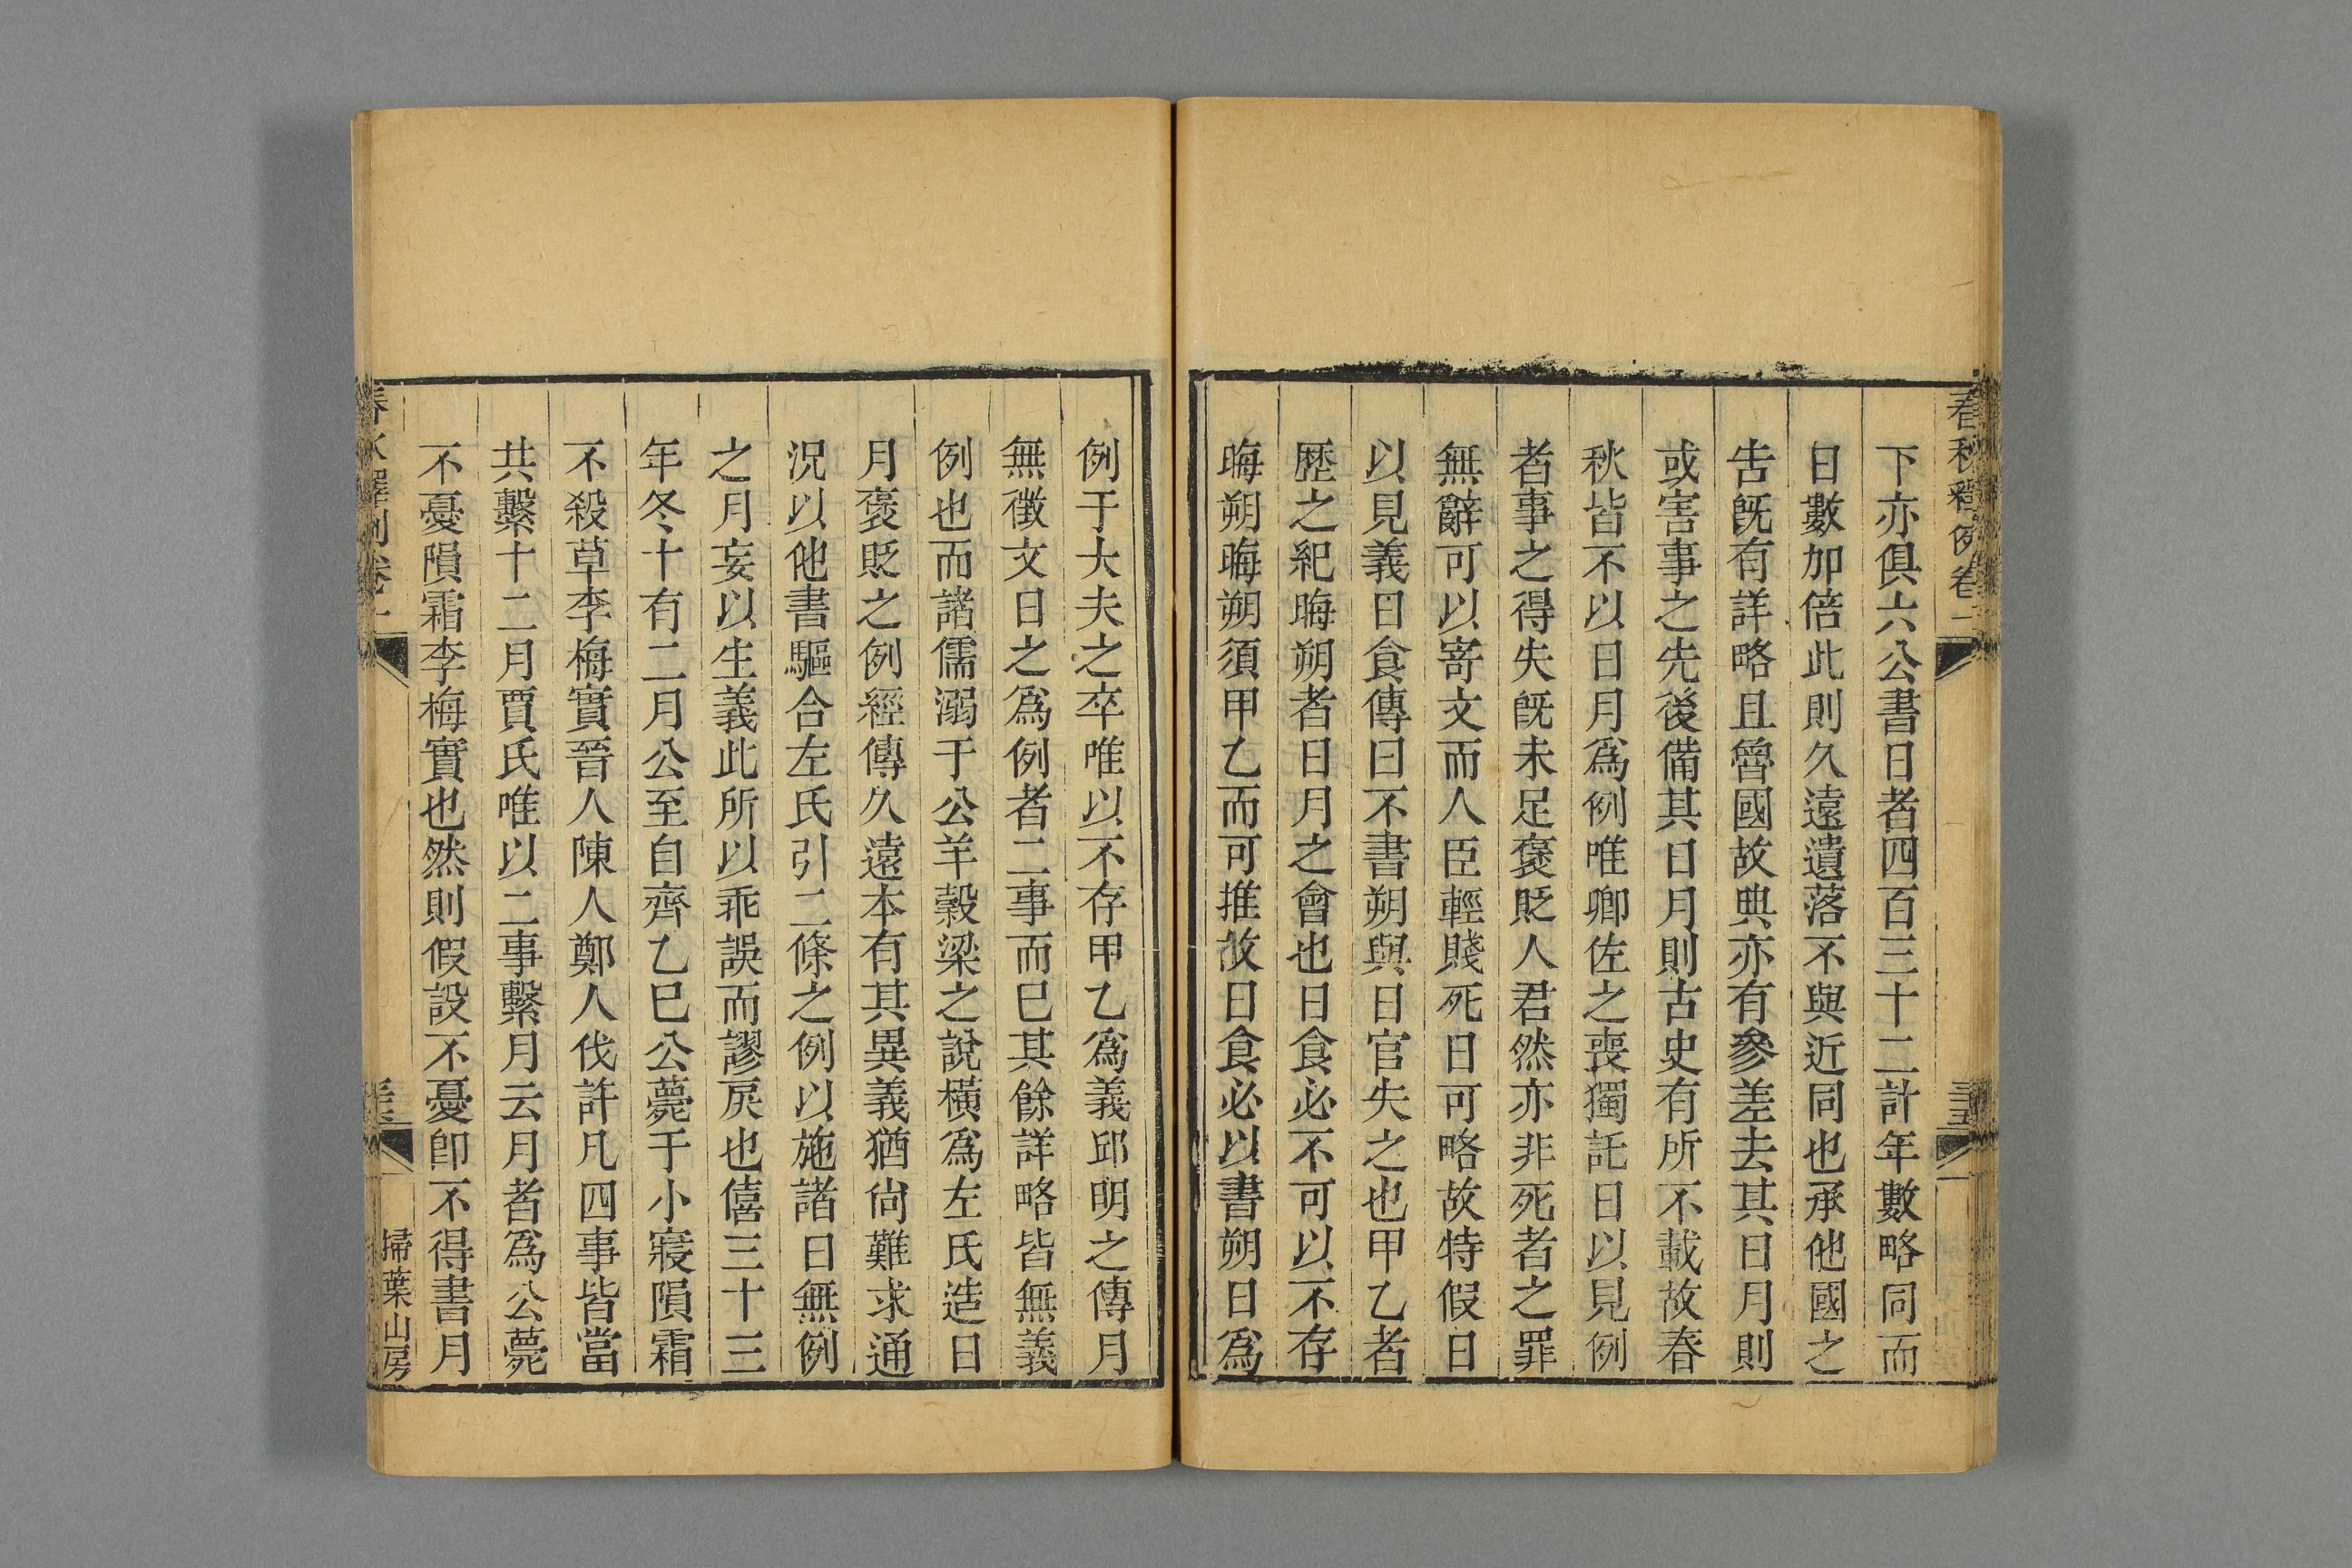 春秋釋例卷一
下亦俱六公書日者四百三十二計年數略同而
日數加倍此則久遠遺落不與近同也承他國之
告旣有詳略且魯國故典亦有參差去其日月則
或害事之先後備其日月則古史有所不載故春
秋皆不以日月爲例唯卿佐之喪獨託日以見例
者事之得失旣未足褒貶人君然亦非死者之罪
無辭可以寄文而人臣輕賤死日可略故特假日
以見義日食傳曰不書朔與日官失之也甲乙者
歷之紀晦朔者日月之會也日食必不可以不存
晦朔晦朔須甲乙而可推故日食必以書朔日爲
例于大夫之卒唯以不存甲乙爲義邱明之傳月
無徵文日之爲例者二事而已其餘詳略皆無義
例也而諸儒溺于公羊穀梁之說橫爲左氏造日
月褒貶之例經傳久遠本有其異義猶尙難求通
況以他書驅合左氏引二條之例以施諸日無例
之月妄以生義此所以乖誤而謬戾也僖三十三
年冬十有二月公至自齊乙巳公薨于小寢隕霜
不殺草李梅實晉人陳人鄭人伐許凡四事皆當
共繫十二月賈氏唯以二事繫月云月者爲公薨
不憂隕霜李梅實也然則假設不憂卽不得書月
掃葉山房